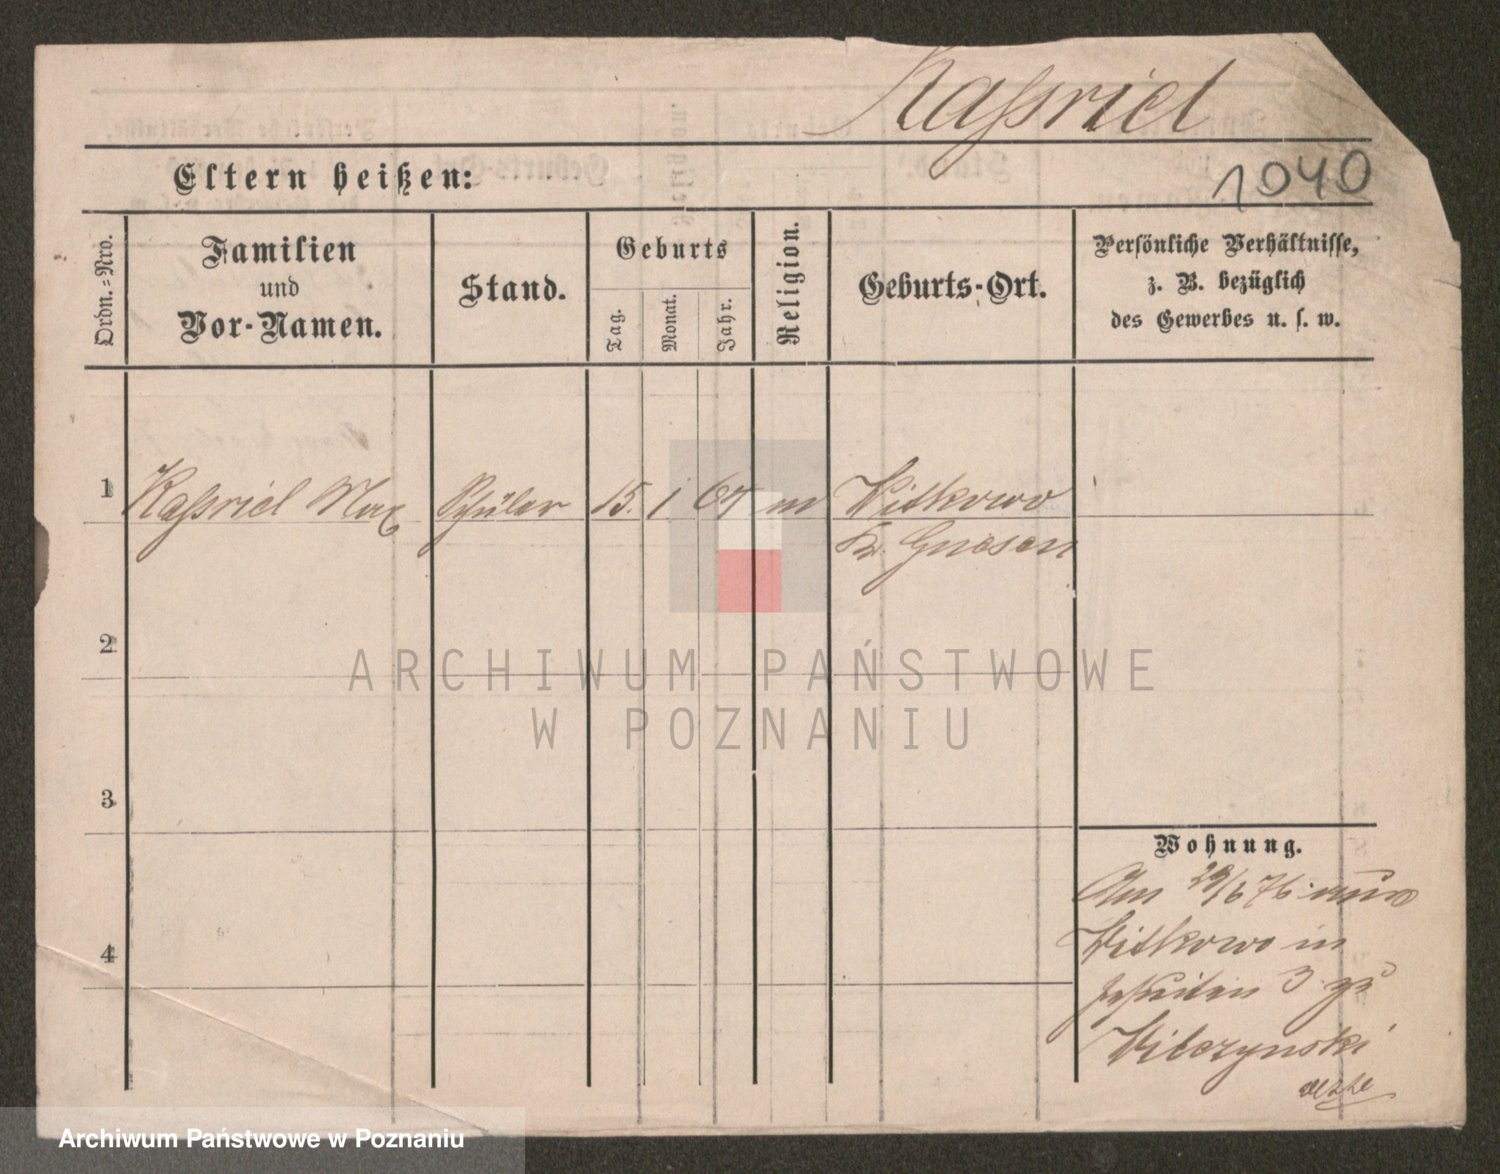 Kaſsriel
1040
Eltern heißen:
Ordn.-Nro.
Familien
und
Vor-Namen.
Stand.
Geburts
Tag.
Monat.
Jahr.
Religion.
Geburts-Ort.
Persönliche Verhältnisse,
z. B. bezüglich
des Gewerbes u. s. w.
1
Kaſsriel Max
Schüler
15.
1
67
m
Witkowo
Kr. Gnesen
2
3
4
Wohnung.
Am 29/6 76. aus
Witkowo in
Jesuiten 3 zu
Wilczynski
ARCHIWUM PAŃSTWOWE
W POZNANIU
Archiwum Państwowe w Poznaniu